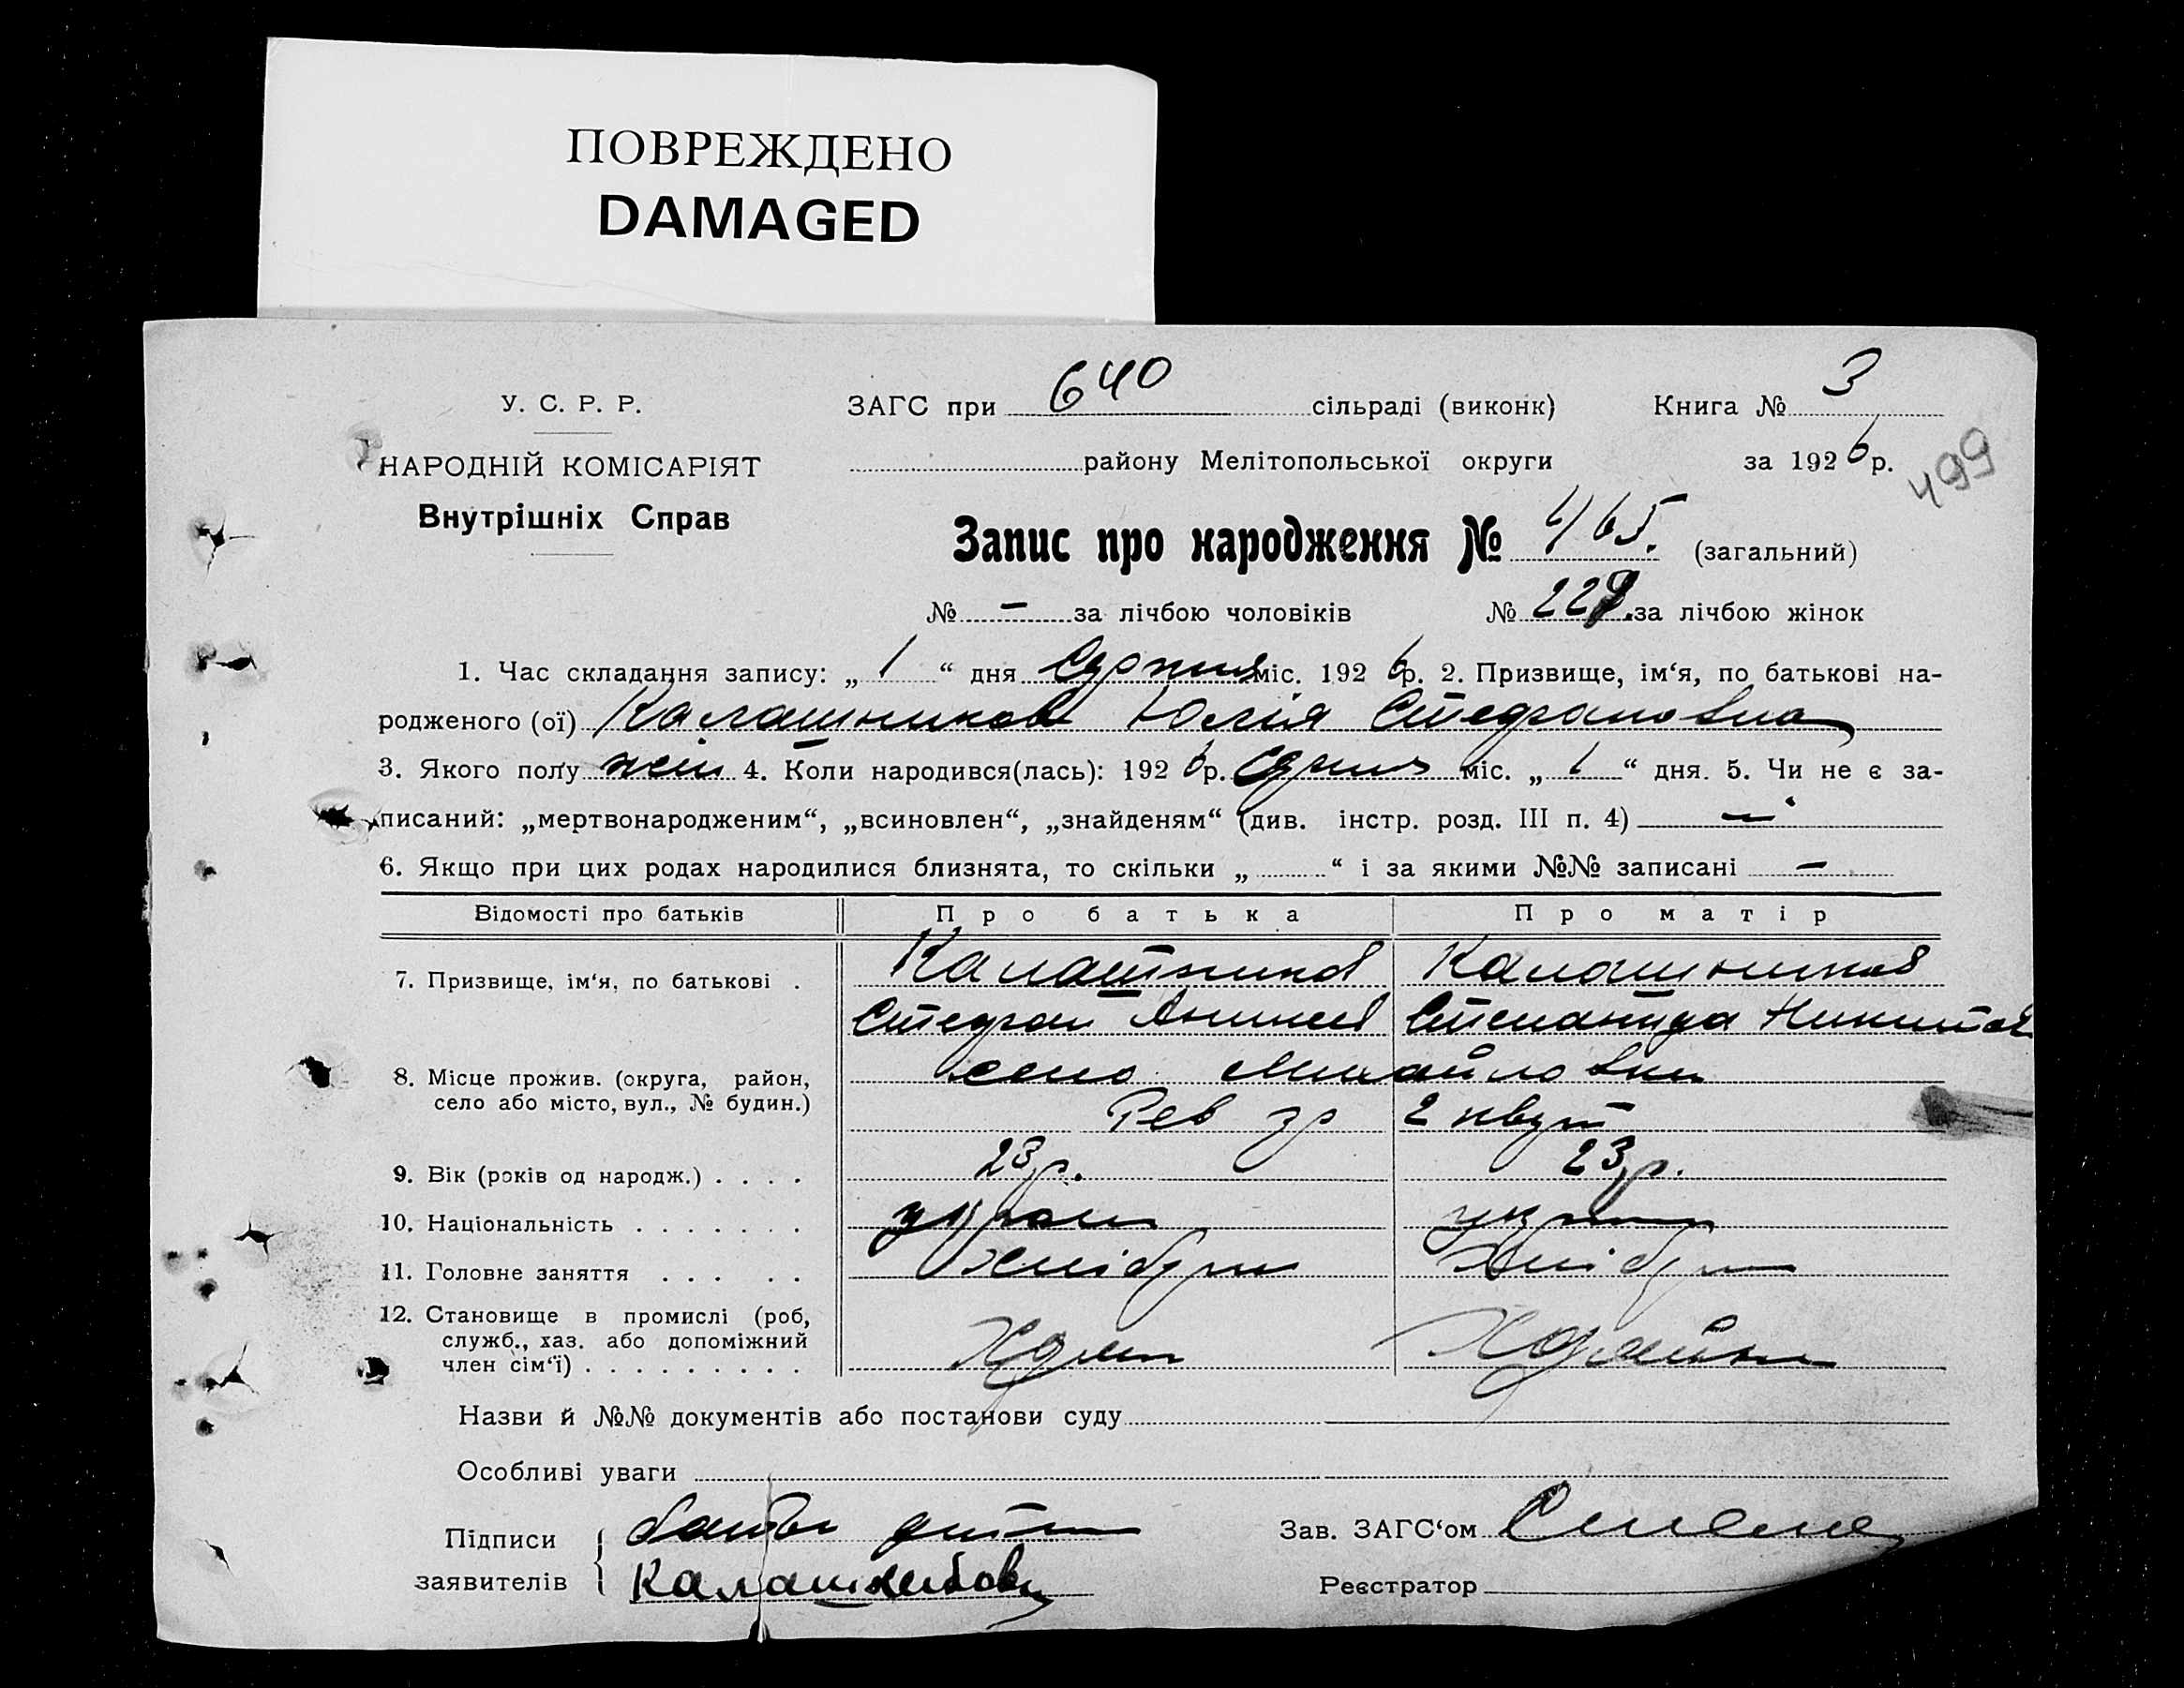 ПОВРЕЖДЕНО
DAMAGED
У. С. Р. Р.
НАРОДНІЙ КОМІСАРІЯТ
Внутрішніх Справ
ЗАГС при 640 сільраді (виконк)
району Мелітопольської округи
Книга № 3
за 1926 р.
499
Запис про народження № 465. (загальний)
№ – за лічбою чоловіків № 229 за лічбою жінок
1. Час складання запису: „ 1 “ дня Серпня міс. 1926 р. 2. Призвище, ім‘я, по батькові на-
родженого (ої) Калашников Юлія Стефановна
3. Якого полґу жін 4. Коли народився(лась): 1926 р. Серпня міс. „ 1 “ дня. 5. Чи не є за-
писаний: „мертвонародженим“, „всиновлен“, „знайденям“ (див. інстр. розд. III п. 4) –
6. Якщо при цих родах народилися близнята, то скільки „ “ і за якими №№ записані –
Відомості про батьків Про батька Про матір
7. Призвище, ім‘я, по батькові . Калашников Калашников
Стефан Степанида Никитов
8. Місце прожив. (округа, район, село або місто, вул., № будин.) село Михайловка
Рев 2
9. Вік (років од народж.) . . . . 23 р. 23 р.
10. Національність . . . . . . . україн укр
11. Головне заняття . . . . . хлібороб хлібороб
12. Становище в промислі (роб, служб., хаз. або допоміжний член сім‘ї) . . . . . . . . .
Назви й №№ документів або постанови суду
Особливі уваги
Підписи заявителів батько
Калашников
Зав. ЗАГС‘ом
Реєстратор